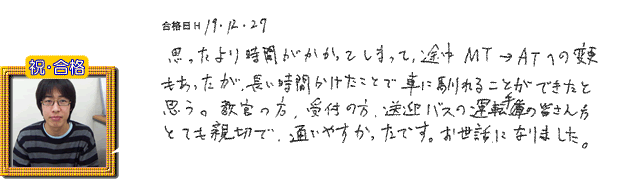 合格日 H 19.12.29
祝・合格
思ったより時間がかかってしまって、途中 MT→ATへの変更
もあったが、長い時間かけたことで車に馴れることができたと
思う。教官の方、受付の方、送迎バスの運転手の皆さん方
とても親切で、通いやすかったです。お世話になりました。